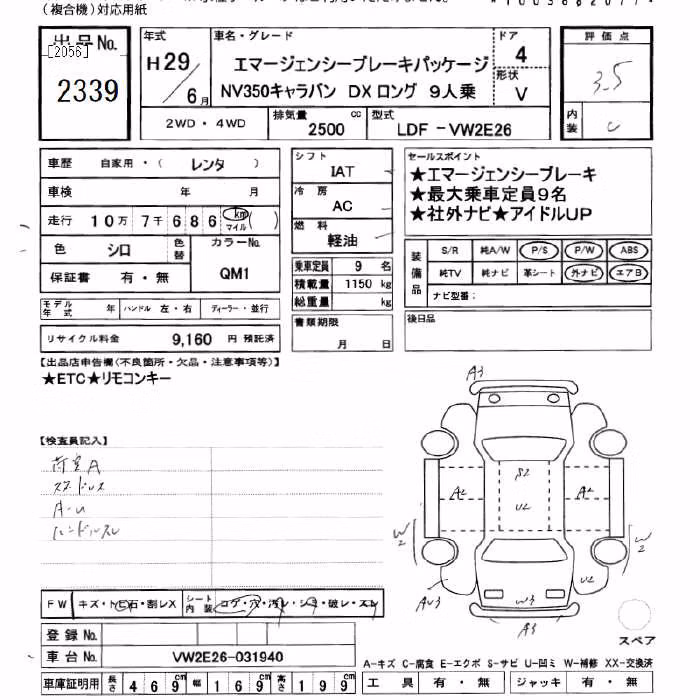 (複合機)対応用紙
出品No.
[2056]
2339
年式
H29/6月
車名・グレード
エマージェンシーブレーキパッケージ
NV350キャラバン DX ロング 9人乗
ドア
4
形状
V
評価点
3.5
内装
C
2WD・4WD
排気量
2500 cc
型式
LDF-VW2E26
車歴 自家用・( レンタ )
車検 年 月
走行 10万 7千 686 km マイル ( )
色 シロ 色替
カラーNo.
QM1
保証書 有・無
モデル年式 年 ハンドル 左・右 ディーラー・並行
リサイクル料金 9,160 円 預託済
シフト
IAT
冷房
AC
燃料
軽油
乗車定員 9 名
積載量 1150 kg
総重量 kg
書類期限
月 日
セールスポイント
★エマージェンシーブレーキ
★最大乗車定員9名
★社外ナビ★アイドルUP
装備品
S/R 純A/W P/S P/W ABS
純TV 純ナビ 革シート 外ナビ エアB
ナビ型番:
後日品
【出品店申告欄(不良箇所・欠品・注意事項等)】
★ETC★リモコンキー
【検査員記入】
荷室A
スタッドレス
A-U
ハンドルスレ
A3
S2
A2
U2
A2
W2
W2
AU3
W3
U2
A3
スペア
FW キズ・トビ石・割レX
シート内装 コゲ・穴・汚レ・シミ・破レ・スレ
登録No.
車台No. VW2E26-031940
車庫証明用 長さ 469cm 幅 169cm 高さ 199cm
A-キズ C-腐食 E-エクボ S-サビ U-凹ミ W-補修 XX-交換済
工具 有・無 ジャッキ 有・無